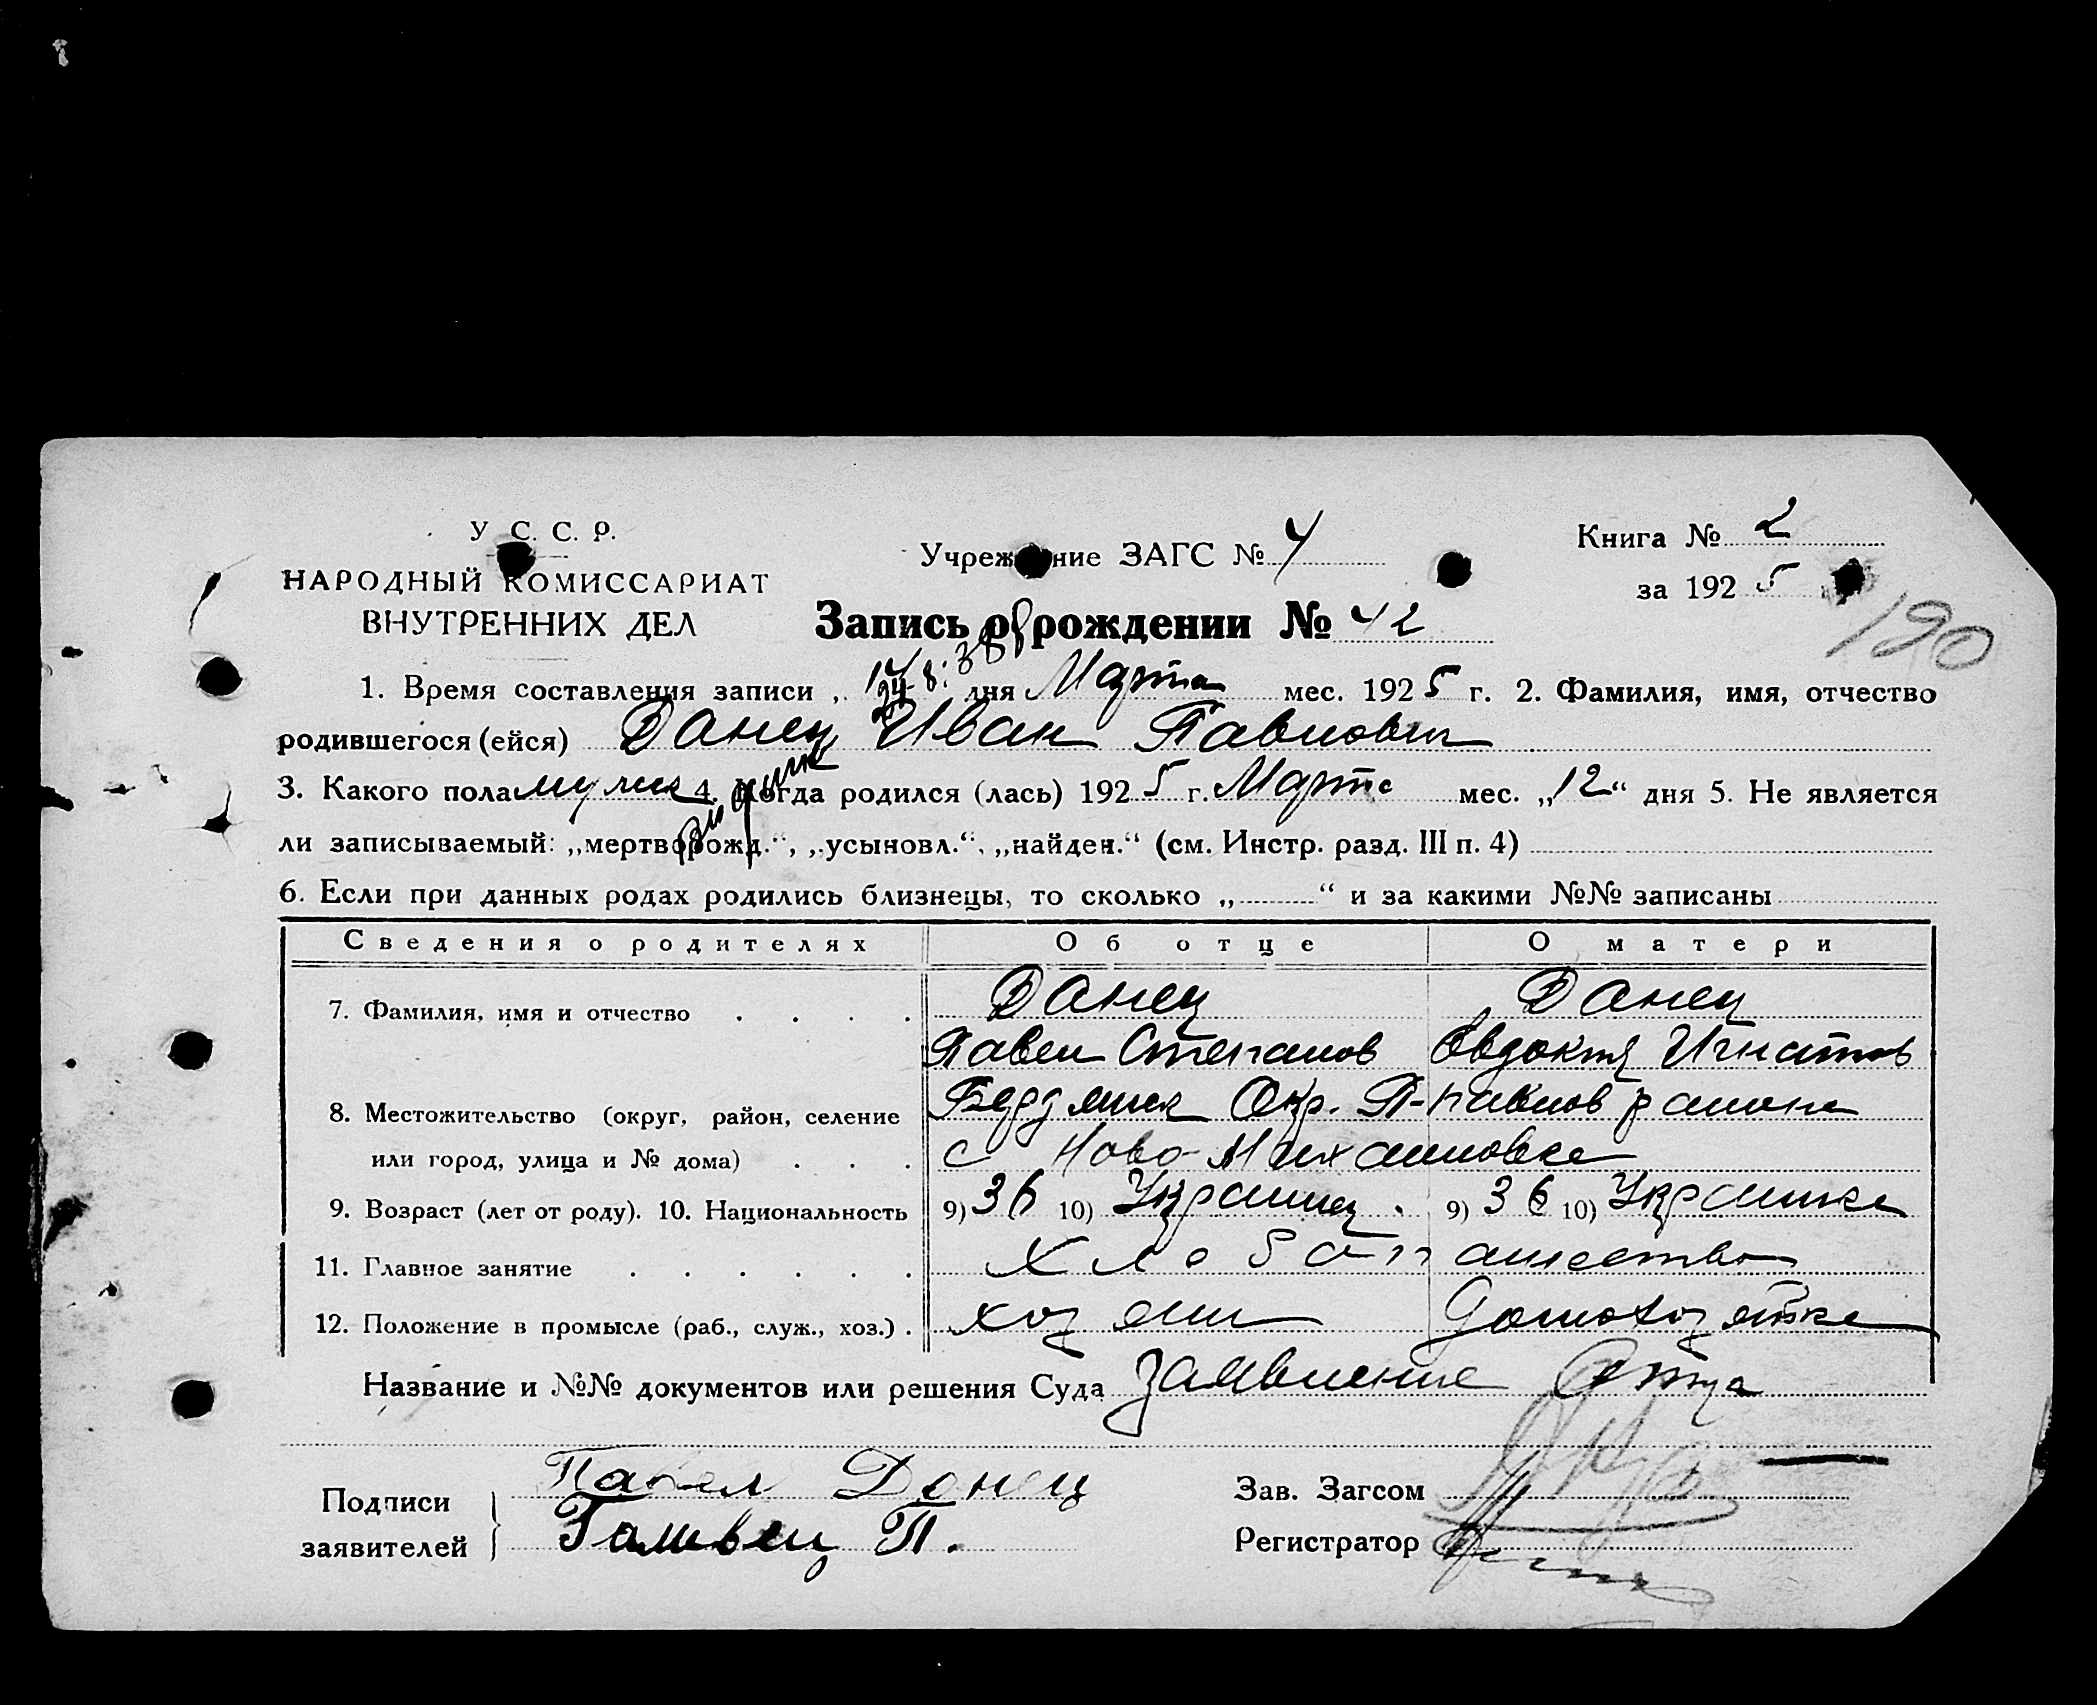 У С. С. Р.
НАРОДНЫЙ КОМИССАРИАТ
ВНУТРЕННИХ ДЕЛ
Учреждение ЗАГС № 4
Книга № 2
за 1925
190
Запись о рождении № 42
1. Время составления записи „ 14 дня Марта мес. 1925 г. 2. Фамилия, имя, отчество
родившегося (ейся) Данец Иван Павлович
3. Какого пола мужск 4. Когда родился (лась) 1925 г. Марта мес. „12“ дня 5. Не является
ли записываемый: „мертворожд.“, „усыновл.“, „найден.“ (см. Инстр. разд. III п. 4)
6. Если при данных родах родились близнецы, то сколько „ “ и за какими №№ записаны
Сведения о родителях Об отце О матери
7. Фамилия, имя и отчество Данец Данец
Павел Степанов Евдокия Игнатов
8. Местожительство (округ, район, селение Бердянск Окр. П-павлов района
или город, улица и № дома) с Ново-Михайловка
9. Возраст (лет от роду). 10. Национальность 9) 36 10) Украинец 9) 36 10) Украинка
11. Главное занятие Хлебопашество
12. Положение в промысле (раб., служ., хоз.) хозяин Домохозяйка
Название и №№ документов или решения Суда Заявление Отца
Подписи заявителей Павел Донец
П.
Зав. Загсом
Регистратор